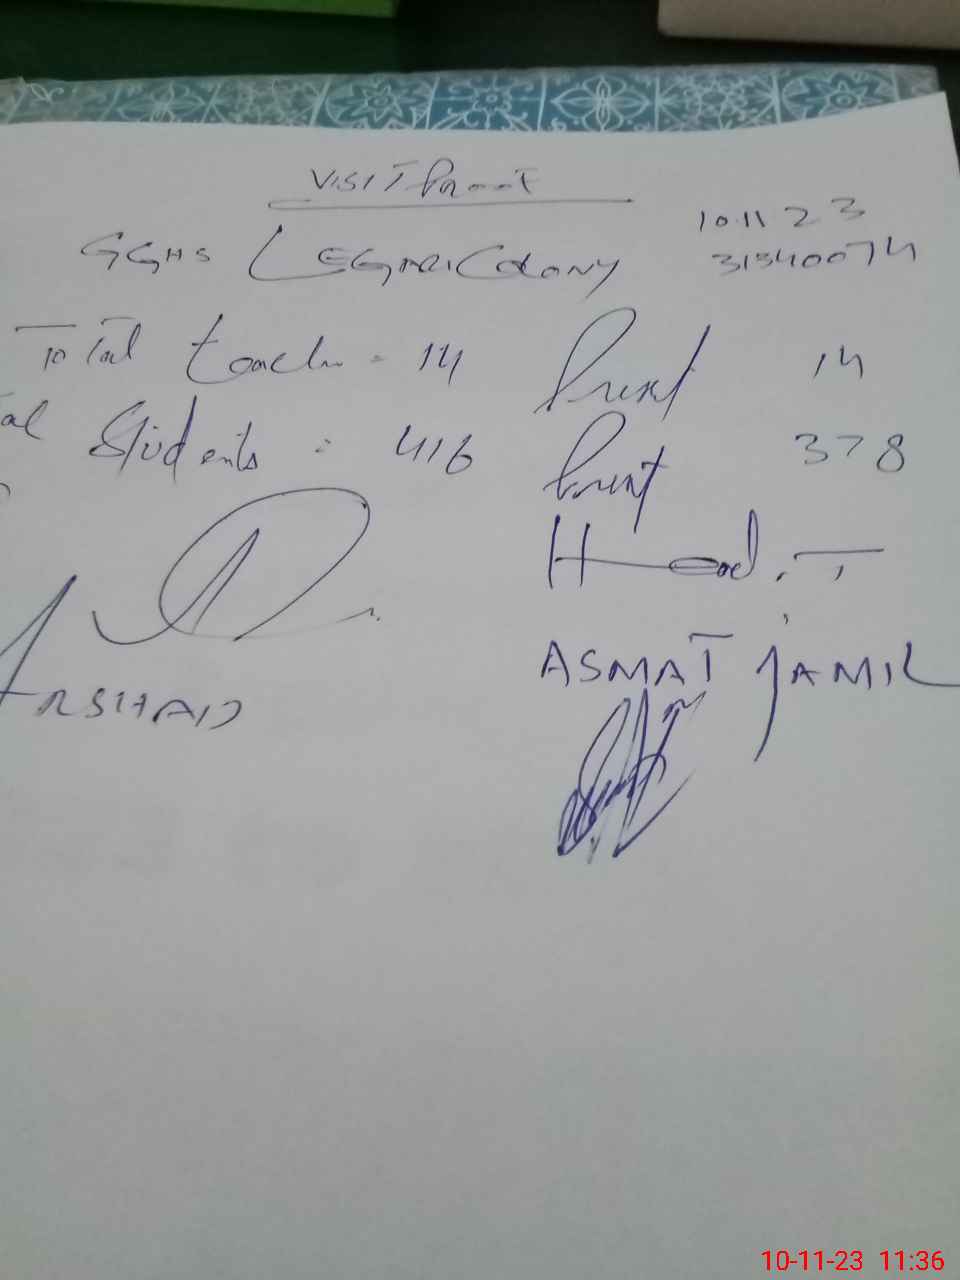 VISIT Proof
10.11 23
GGHS LEGARI COLONY 31340074
Total teacher = 14 Present 14
al Students = 416 Present 378
Head. T
ARSHAD
ASMAT JAMIL
10-11-23 11:36